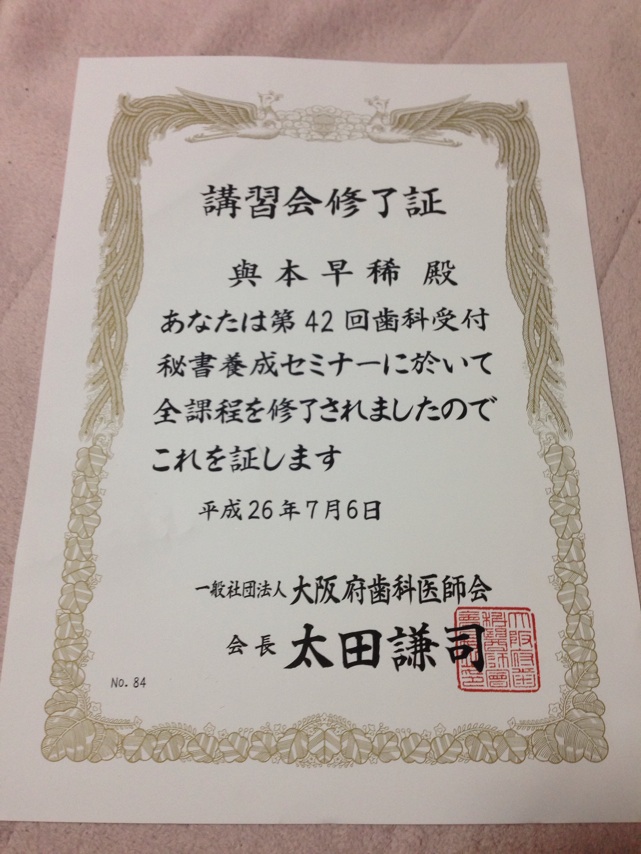 講習会修了証
與本早稀 殿
あなたは第42回歯科受付
秘書養成セミナーに於いて
全課程を修了されましたので
これを証します
平成26年7月6日
一般社団法人 大阪府歯科医師会
会長 太田謙司
No. 84